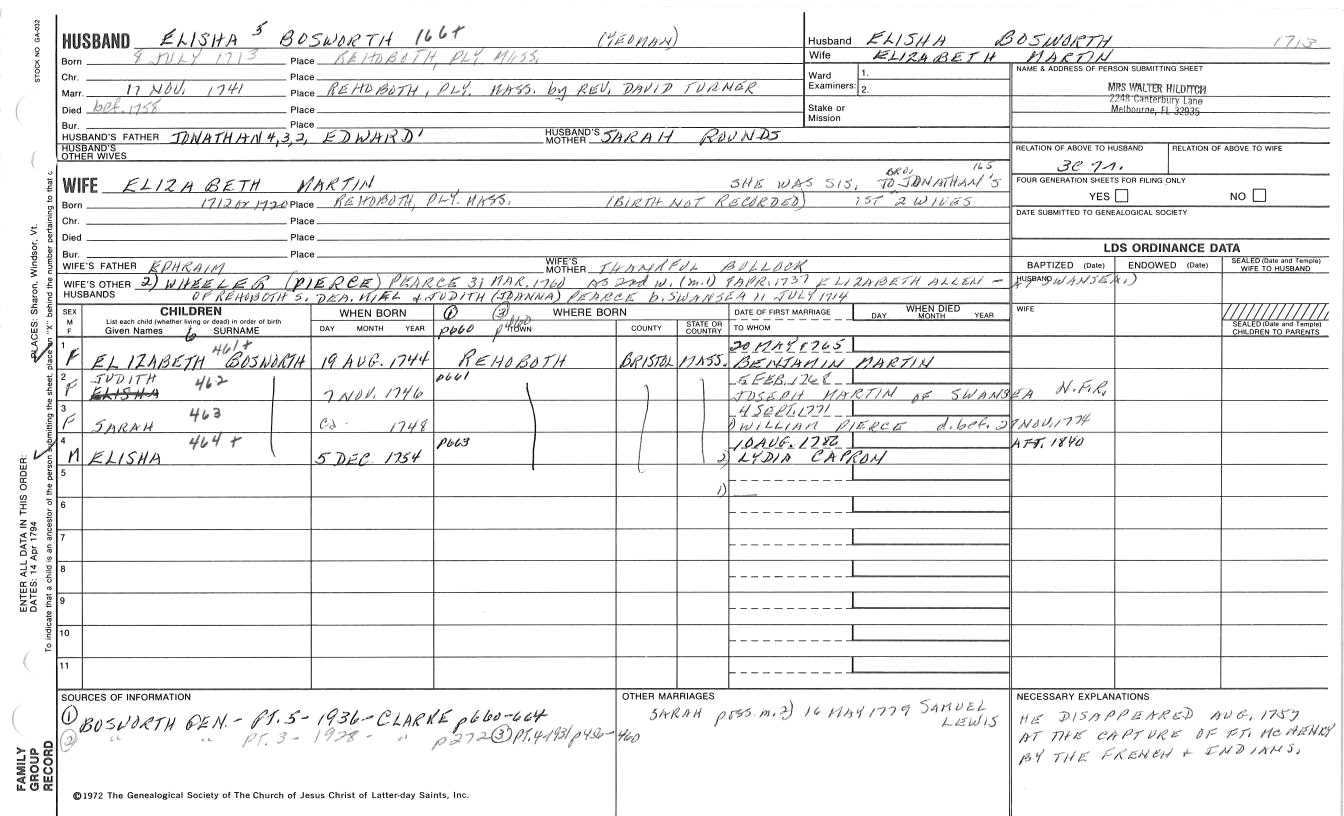 STOCK NO GA-032
HUSBAND ELISHA 5 BOSWORTH 166+ (YEOMAN)
Born 8 JULY 1713 Place REHOBOTH, PLY. MASS.
Chr. Place
Marr. 17 NOV. 1741 Place REHOBOTH, PLY. MASS. by REV. DAVID TURNER
Died bef. 1758 Place
Bur. Place
HUSBAND'S FATHER JONATHAN 4,3,2, EDWARD 1 HUSBAND'S MOTHER SARAH ROUNDS
HUSBAND'S OTHER WIVES
Husband ELISHA BOSWORTH 1713
Wife ELIZABETH MARTIN
Ward Examiners: 1. 2.
Stake or Mission
NAME & ADDRESS OF PERSON SUBMITTING SHEET
MRS WALTER HILDITCH
2248 Canterbury Lane
Melbourne, FL 32935
RELATION OF ABOVE TO HUSBAND RELATION OF ABOVE TO WIFE
FOUR GENERATION SHEETS FOR FILING ONLY
YES NO
DATE SUBMITTED TO GENEALOGICAL SOCIETY
LDS ORDINANCE DATA
BAPTIZED (Date) ENDOWED (Date) SEALED (Date and Temple) WIFE TO HUSBAND
HUSBAND
WIFE
SEALED (Date and Temple) CHILDREN TO PARENTS
BRO. 165
WIFE ELIZABETH MARTIN SHE WAS SIS. TO JONATHAN'S
Born 1712 or 1720 Place REHOBOTH, PLY. MASS. (BIRTH NOT RECORDED) 1ST 2 WIVES
Chr. Place
Died Place
Bur. Place
WIFE'S FATHER EPHRAIM WIFE'S MOTHER THANKFUL BULLOCK
WIFE'S OTHER HUSBANDS 2) WHEELER (PIERCE) PEARCE 31 MAR. 1760 AS 2nd W. (m.1) 9 APR. 1737 ELIZABETH ALLEN - of SWANSEA.)
OF REHOBOTH S. DEA. MIEL & JUDITH (JOANNA) PEARCE b. SWANSEA 11 JULY 1714
SEX M F
CHILDREN
List each child (whether living or dead) in order of birth
Given Names 6 SURNAME
WHEN BORN
DAY MONTH YEAR
① ③ WHERE BORN
p660 p460 TOWN COUNTY STATE OR COUNTRY
DATE OF FIRST MARRIAGE
TO WHOM
WHEN DIED
DAY MONTH YEAR
461+ 20 MAY 1765
1 F ELIZABETH BOSWORTH 19 AUG. 1744 REHOBOTH BRISTOL MASS. BENJAMIN MARTIN
2 JUDITH 462 p661 5 FEB. 1768
F ELISHA 7 NOV. 1746 JOSEPH MARTIN OF SWANSEA N.F.R.
3 463 4 SEPT. 1771
F SARAH Ca. 1748 1) WILLIAM PIERCE d. bef. 27 NOV. 1774
4 464+ p663 10 AUG. 1786 AFT. 1840
M ELISHA 5 DEC. 1754 2) LYDIA CAPRON
5
1)
6
7
8
9
10
11
SOURCES OF INFORMATION
① BOSWORTH GEN. - PT. 5 - 1936 - CLARKE p660-664
② " " PT. 3 - 1928 - " p272 ③ PT. 4-1931 p456-460
OTHER MARRIAGES
SARAH poss. m. 2) 16 MAY 1779 SAMUEL LEWIS
NECESSARY EXPLANATIONS
HE DISAPPEARED AUG. 1757
AT THE CAPTURE OF FT. McHENRY
BY THE FRENCH & INDIANS.
©1972 The Genealogical Society of The Church of Jesus Christ of Latter-day Saints, Inc.
FAMILY GROUP RECORD
ENTER ALL DATA IN THIS ORDER:
DATES: 14 Apr 1794
PLACES: Sharon, Windsor, Vt.
To indicate that a child is an ancestor of the person submitting the sheet, place an "X" behind the number pertaining to that c